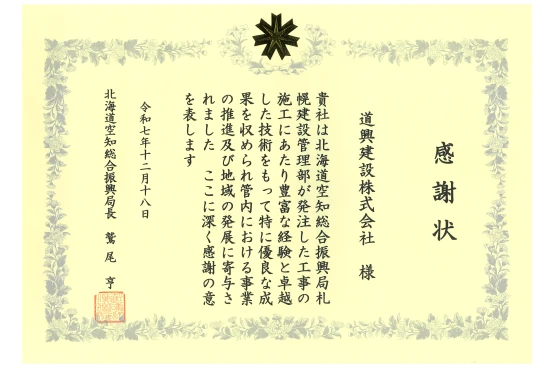 感謝状
道興建設株式会社 様
貴社は北海道空知総合振興局札
幌建設管理部が発注した工事の
施工にあたり豊富な経験と卓越
した技術をもって特に優良な成
果を収められ管内における事業
の推進及び地域の発展に寄与さ
れました ここに深く感謝の意
を表します
令和七年十二月十八日
北海道空知総合振興局長 鷲尾 亨